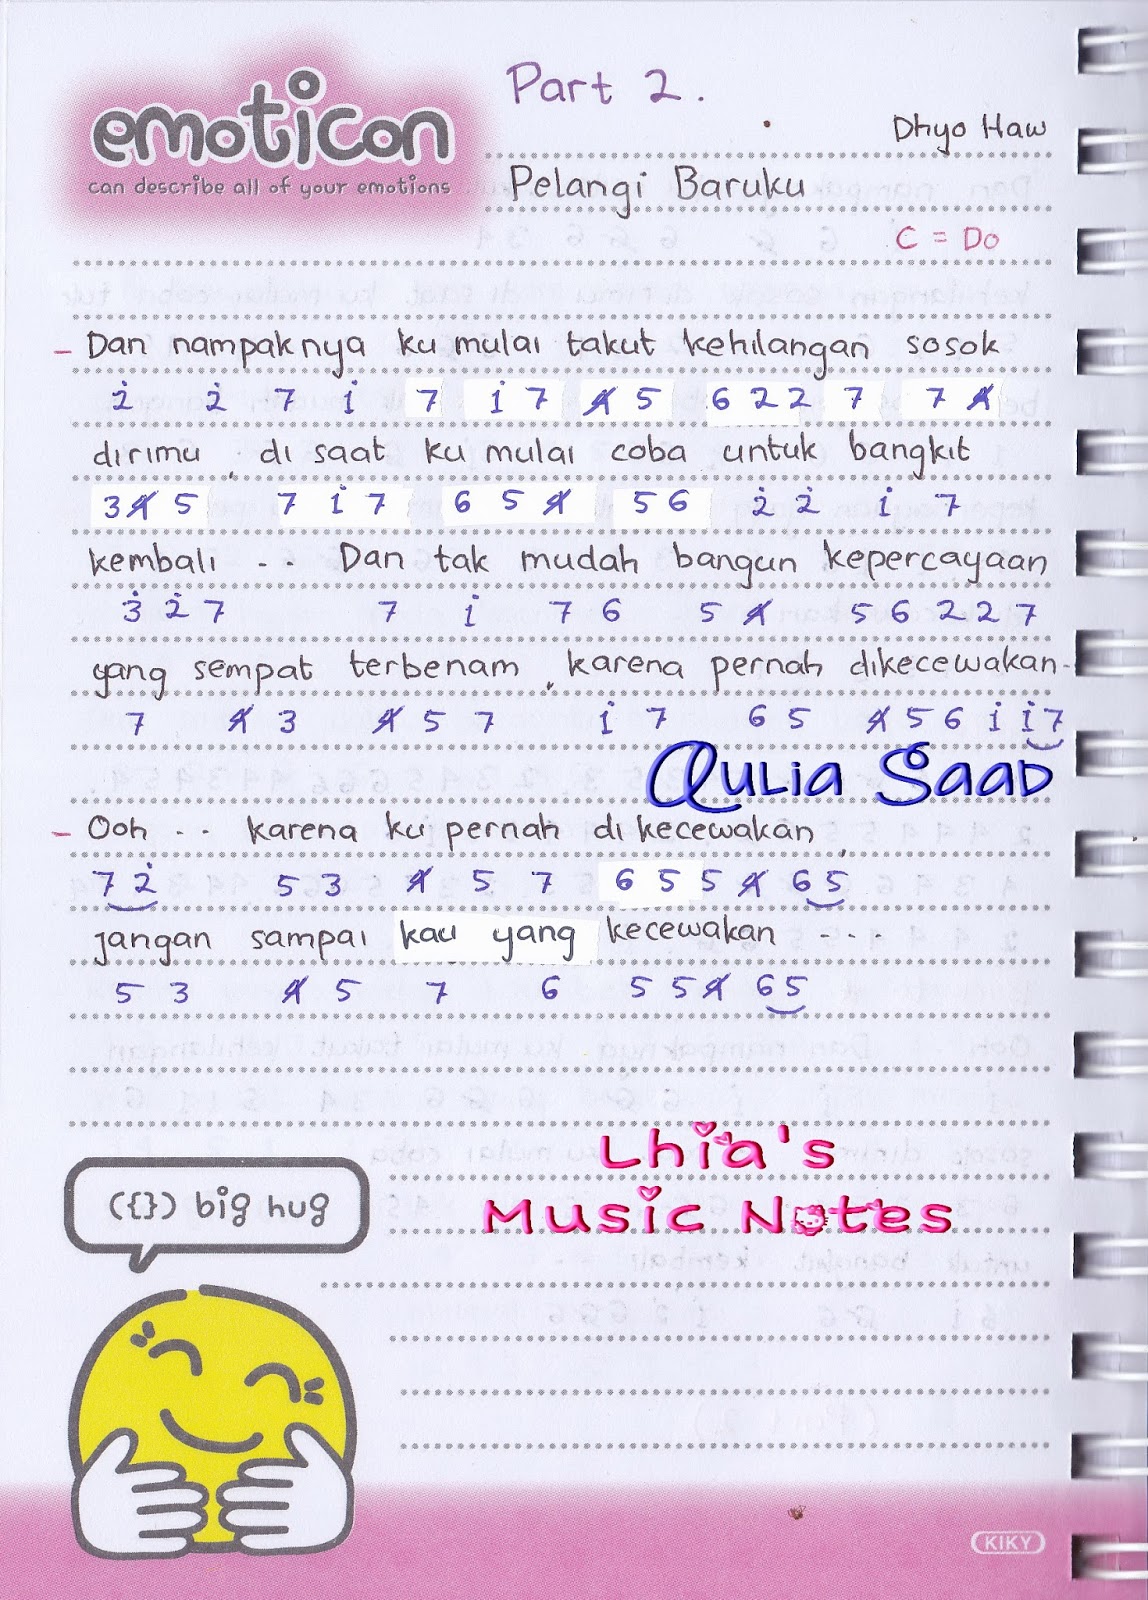 emoticon
can describe all of your emotions
Part 2.
Dhyo Haw
Pelangi Baruku
C = Do
- Dan nampaknya ku mulai takut kehilangan sosok
2̇ 2̇ 7 1̇ 7 1̇ 7 4̸ 5 6 2 2 7 7 4̸
dirimu, di saat ku mulai coba untuk bangkit
3 4̸ 5 7 1̇ 7 6 5 4̸ 5 6 2̇ 2̇ 1̇ 7
kembali .. Dan tak mudah bangun kepercayaan
3̇ 2̇ 7 7 1̇ 7 6 5 4̸ 5 6 2 2 7
yang sempat terbenam, karena pernah dikecewakan-
7 4̸ 3 4̸ 5 7 1̇ 7 6 5 4̸ 5 6 1̇ 1̇ 7
Qulia Saad
- Ooh .. karena ku pernah di kecewakan,
7 2̇ 5 3 4̸ 5 7 6 5 5 4̸ 6 5
jangan sampai kau yang kecewakan ...
5 3 4̸ 5 7 6 5 5 4̸ 6 5
Lhia's
Music Notes
({}) big hug
KIKY